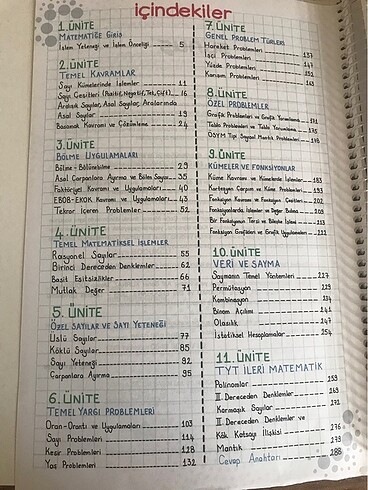 içindekiler
1.ÜNİTE
MATEMATİĞE GİRİŞ
İşlem Yeteneği ve İşlem Önceliği 5
2.ÜNİTE
TEMEL KAVRAMLAR
Sayı Kümelerinde İşlemler 11
Sayı Çeşitleri (Pozitif, Negatif, Tek, Çift) 16
Ardışık Sayılar, Asal Sayılar, Aralarında
Asal Sayılar 19
Basamak Kavramı ve Çözümleme 24
3.ÜNİTE
BÖLME UYGULAMALARI
Bölme-Bölünebilme 29
Asal Çarpanlara Ayırma ve Bölen Sayısı 35
Faktöriyel Kavramı ve Uygulamaları 40
EBOB-EKOK Kavramı ve Uygulamaları 43
Tekrar İçeren Problemler 52
4.ÜNİTE
TEMEL MATEMATİKSEL İŞLEMLER
Rasyonel Sayılar 55
Birinci Dereceden Denklemler 62
Basit Eşitsizlikler 66
Mutlak Değer 71
5.ÜNİTE
ÖZEL SAYILAR VE SAYI YETENEĞİ
Üslü Sayılar 77
Köklü Sayılar 85
Sayı Yeteneği 92
Çarpanlara Ayırma 95
6.ÜNİTE
TEMEL YARGI PROBLEMLERİ
Oran-Orantı ve Uygulamaları 103
Sayı Problemleri 114
Kesir Problemleri 128
Yaş Problemleri 132
7.ÜNİTE
GENEL PROBLEM TÜRLERİ
Hareket Problemleri 137
İşçi Problemleri 147
Yüzde Problemleri 151
Karışım Problemleri
8.ÜNİTE
ÖZEL PROBLEMLER
Grafik Problemleri ve Grafik Yorumlama 171
Tablo Problemleri ve Tablo Yorumlama 175
ÖSYM Tipi Sayısal Mantık Problemleri 178
9.ÜNİTE
KÜMELER VE FONKSİYONLAR
Küme Kavramı ve Kümelerde İşlemler 183
Kartezyen Çarpım ve Küme Problemleri 193
Fonksiyon Kavramı ve Fonksiyon Çeşitleri 202
Fonksiyonlarda İşlemler ve Değer Bulma 209
Bir Fonksiyonun Tersi ve Bileşke İşlemi 213
Fonksiyon Grafikleri ve Grafik Uygulamaları
10.ÜNİTE
VERİ VE SAYMA
Saymanın Temel Yöntemleri 227
Permütasyon 229
Kombinasyon 234
Binom Açılımı 241
Olasılık 247
İstatiksel Hesaplamalar 254
11.ÜNİTE
TYT İLERİ MATEMATİK
Polinomlar 259
II. Dereceden Denklemler 269
Karmaşık Sayılar 272
II. Dereceden Denklemler ve
Kök Katsayı İlişkisi 276
Mantık 279
Cevap Anahtarı 288